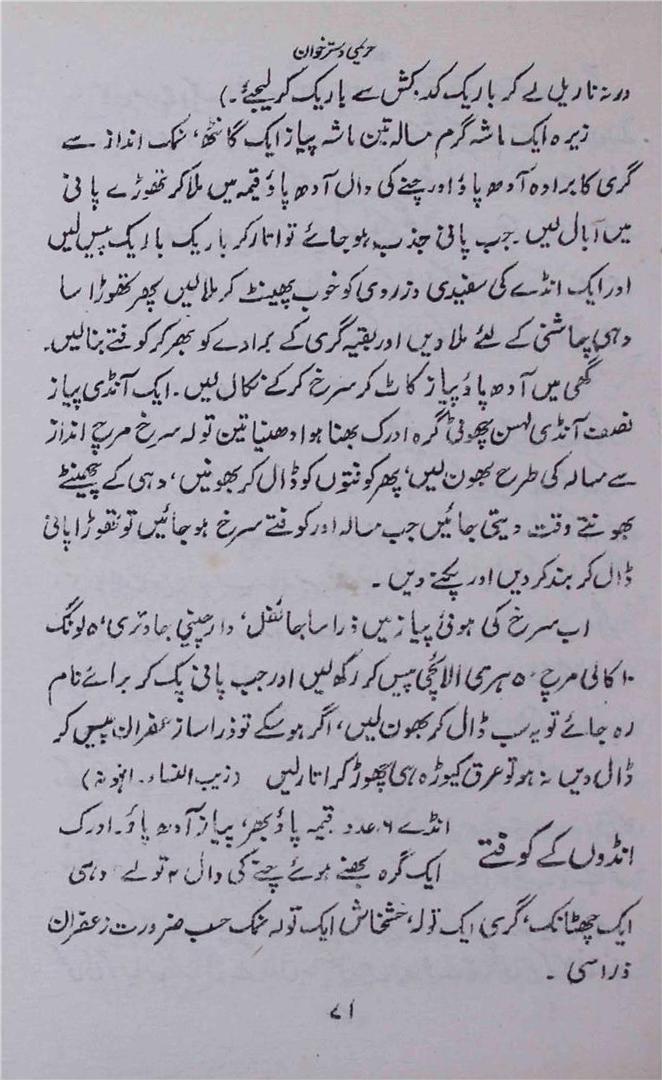 حریمی دسترخوان
ورنہ ناریل لے کر باریک کدوکش سے باریک کر لیجئے۔)
زیرہ ایک ماشہ گرم مسالہ تین ماشہ پیاز ایک گانٹھ، نمک انداز سے
گری کا برادہ آدھ پاؤ اور چنے کی دال آدھ پاؤ قیمہ میں ملا کر تھوڑے پانی
میں اُبال لیں۔ جب پانی جذب ہو جائے تو اتار کر باریک باریک پیس لیں
اور ایک انڈے کی سفیدی و زردی کو خوب پھینٹ کر ملا لیں پھر تھوڑا سا
دہی چاشنی کے لئے ملا دیں اور بقیہ گری کے برادے کو بھر کر کوفتے بنا لیں۔
گھی میں آدھ پاؤ پیاز کاٹ کر سرخ کر کے نکال لیں۔ ایک آنڈی پیاز
نصف آنڈی لہسن چھوٹی گرہ ادرک بھنا ہوا دھنیا تین تولہ سرخ مرچ انداز
سے مسالہ کی طرح بھون لیں، پھر کوفتوں کو ڈال کر بھونیں، دہی کے چھینٹے
بھونتے وقت دیتی جائیں جب مسالہ اور کوفتے سرخ ہو جائیں تو تھوڑا پانی
ڈال کر بند کر دیں اور پکنے دیں۔
اب سرخ کی ہوئی پیاز میں ذرا سا جائفل، دارچینی جاوتری، ۵ لونگ
۱۰ کالی مرچ، ۵ ہری الائچی پیس کر رکھ لیں اور جب پانی پک کر برائے نام
رہ جائے تو یہ سب ڈال کر بھون لیں، اگر ہو سکے تو ذرا سا زعفران پیس کر
ڈال دیں نہ ہو تو عرق کیوڑہ ہی چھوڑ کر اتار لیں (زیب النساء۔
انڈوں کے کوفتے انڈے ۶ عدد قیمہ پاؤ بھر، پیاز آدھ پاؤ۔ ادرک
ایک گرہ بھنے ہوئے چنے کی دال ۲ تولے، دہی
ایک چھٹانک، گری ایک تولہ، خشخاش ایک تولہ نمک حسب ضرورت زعفران
ذرا سی۔
۷۱